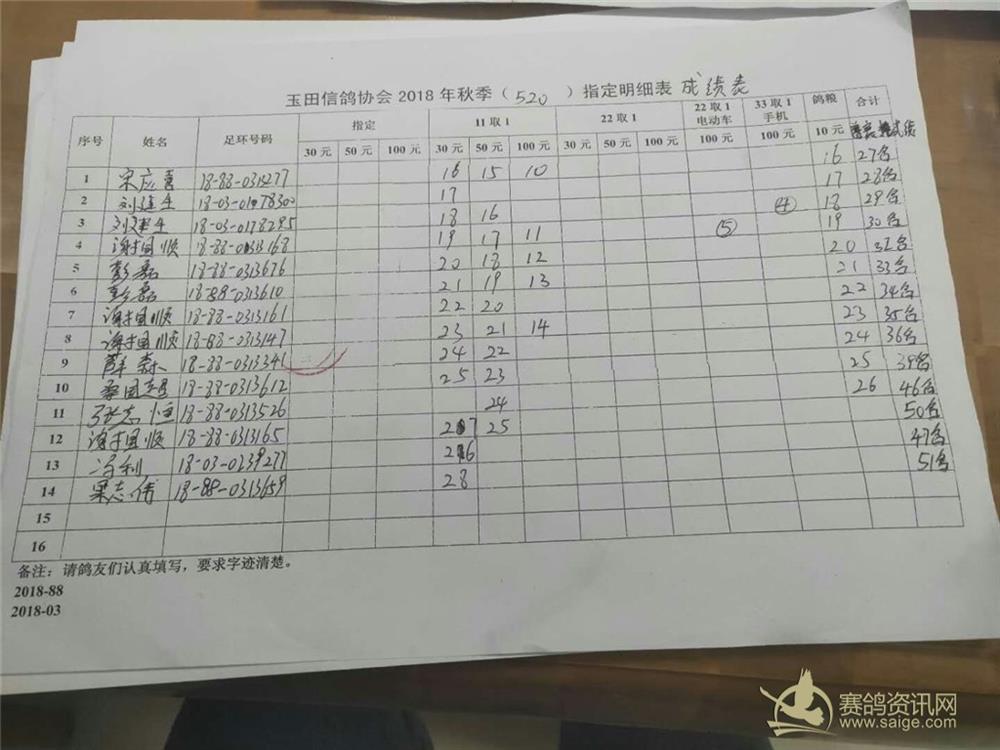 玉田信鸽协会 2018 年秋季（ 520 ）指定明细表 成绩表
序号 姓名 足环号码 指定 11 取 1 22 取 1 22 取 1 电动车 33 取 1 手机 鸽粮 合计
30 元 50 元 100 元 30 元 50 元 100 元 30 元 50 元 100 元 100 元 100 元 10 元
1 宋应喜 18-88-0314277 16 15 10 16 27名
2 刘建生 18-03-0178300 17 17 28名
3 刘建生 18-03-0178295 18 16 ④ 18 29名
4 谢国顺 18-88-0313168 19 17 11 ⑤ 19 30名
5 彭磊 18-88-0313676 20 18 12 20 32名
6 彭磊 18-88-0313610 21 19 13 21 33名
7 谢国顺 18-88-0313161 22 20 22 34名
8 谢国顺 18-88-0313147 23 21 14 23 35名
9 18-88-0313341 24 22 24 36名
10 18-88-0313612 25 23 25 39名
11 张志恒 18-88-0313526 24 26 46名
12 谢国顺 18-88-0313165 27 25 50名
13 冯利 18-03-0239277 26 47名
14 梁志倩 18-88-0313659 28 51名
15
16
备注：请鸽友们认真填写，要求字迹清楚。
2018-88
2018-03
赛鸽资讯网
www.saige.com